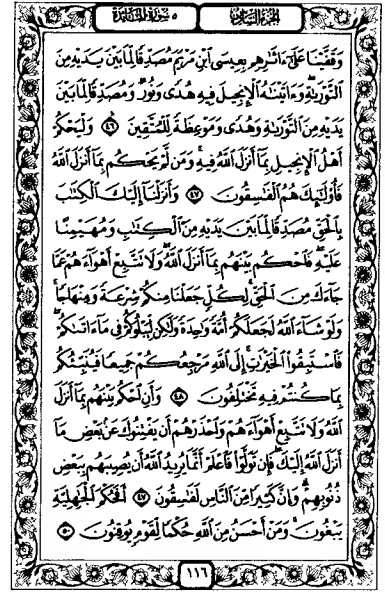 الجزء السادس ٥ سورة المائدة
وَقَفَّيْنَا عَلَىٰٓ ءَاثَٰرِهِم بِعِيسَى ٱبْنِ مَرْيَمَ مُصَدِّقًا لِّمَا بَيْنَ يَدَيْهِ مِنَ
ٱلتَّوْرَىٰةِ وَءَاتَيْنَٰهُ ٱلْإِنجِيلَ فِيهِ هُدًى وَنُورٌ وَمُصَدِّقًا لِّمَا بَيْنَ
يَدَيْهِ مِنَ ٱلتَّوْرَىٰةِ وَهُدًى وَمَوْعِظَةً لِّلْمُتَّقِينَ ٤٦ وَلْيَحْكُمْ
أَهْلُ ٱلْإِنجِيلِ بِمَآ أَنزَلَ ٱللَّهُ فِيهِ وَمَن لَّمْ يَحْكُم بِمَآ أَنزَلَ ٱللَّهُ
فَأُو۟لَٰٓئِكَ هُمُ ٱلْفَٰسِقُونَ ٤٧ وَأَنزَلْنَآ إِلَيْكَ ٱلْكِتَٰبَ
بِٱلْحَقِّ مُصَدِّقًا لِّمَا بَيْنَ يَدَيْهِ مِنَ ٱلْكِتَٰبِ وَمُهَيْمِنًا
عَلَيْهِ فَٱحْكُم بَيْنَهُم بِمَآ أَنزَلَ ٱللَّهُ وَلَا تَتَّبِعْ أَهْوَآءَهُمْ عَمَّا
جَآءَكَ مِنَ ٱلْحَقِّ لِكُلٍّ جَعَلْنَا مِنكُمْ شِرْعَةً وَمِنْهَاجًا
وَلَوْ شَآءَ ٱللَّهُ لَجَعَلَكُمْ أُمَّةً وَٰحِدَةً وَلَٰكِن لِّيَبْلُوَكُمْ فِى مَآ ءَاتَىٰكُمْ
فَٱسْتَبِقُوا۟ ٱلْخَيْرَٰتِ إِلَى ٱللَّهِ مَرْجِعُكُمْ جَمِيعًا فَيُنَبِّئُكُم
بِمَا كُنتُمْ فِيهِ تَخْتَلِفُونَ ٤٨ وَأَنِ ٱحْكُم بَيْنَهُم بِمَآ أَنزَلَ
ٱللَّهُ وَلَا تَتَّبِعْ أَهْوَآءَهُمْ وَٱحْذَرْهُمْ أَن يَفْتِنُوكَ عَنۢ بَعْضِ مَآ
أَنزَلَ ٱللَّهُ إِلَيْكَ فَإِن تَوَلَّوْا۟ فَٱعْلَمْ أَنَّمَا يُرِيدُ ٱللَّهُ أَن يُصِيبَهُم بِبَعْضِ
ذُنُوبِهِمْ وَإِنَّ كَثِيرًا مِّنَ ٱلنَّاسِ لَفَٰسِقُونَ ٤٩ أَفَحُكْمَ ٱلْجَٰهِلِيَّةِ
يَبْغُونَ وَمَنْ أَحْسَنُ مِنَ ٱللَّهِ حُكْمًا لِّقَوْمٍ يُوقِنُونَ ٥٠
١١٦